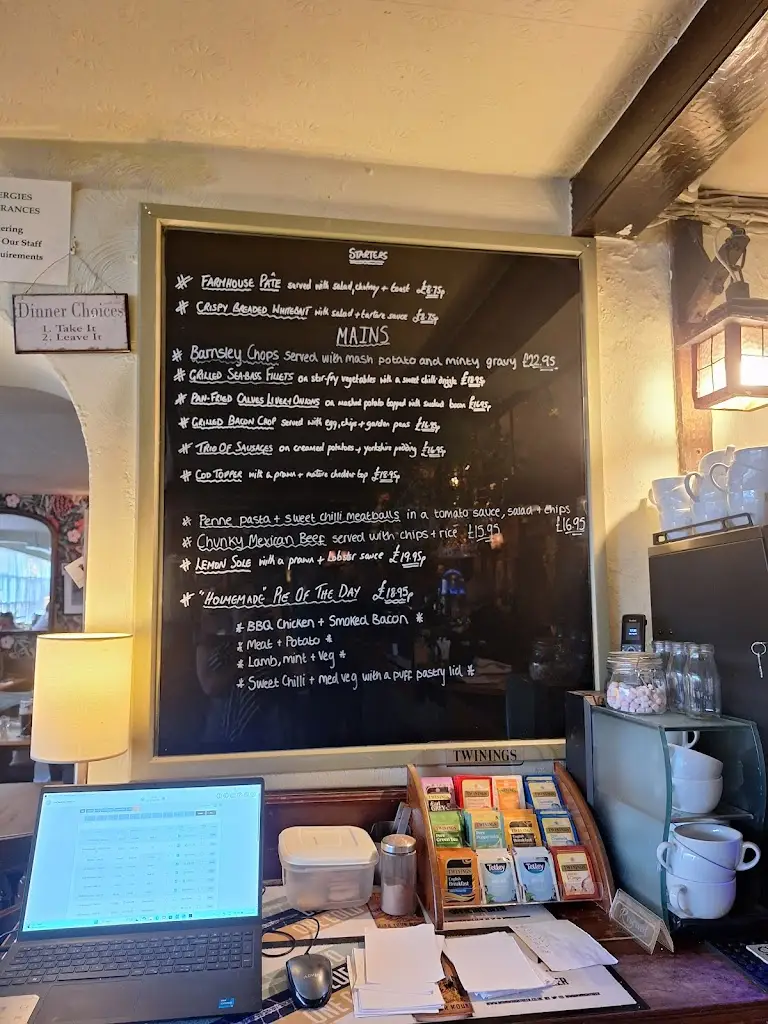 ERGIES
RANCES
ering
Our Staff
uirements
Dinner Choices
1. Take It
2. Leave It
STARTERS
* FARMHOUSE PÂTE served with salad, chutney + toast £8.75p
* CRISPY BREADED WHITEBAIT with salad + tartare sauce £8.75p
MAINS
* Barnsley Chops served with mash potato and minty gravy £22.95
* GRILLED SEA-BASS FILLETS on stir-fry vegetables with a sweet chilli drizzle £18.95
* PAN-FRIED CALVES LIVER + ONIONS on mashed potato topped with smoked bacon £16.95
* GRILLED BACON CHOP served with egg, chips + garden peas £16.95p
* TRIO OF SAUSAGES on creamed potatoes + yorkshire pudding £16.95
* COD TOPPER with a prawn + mature cheddar top £18.95p
* Penne pasta + sweet chilli meatballs in a tomato sauce, salad + chips £16.95
* Chunky Mexican Beef served with chips + rice £15.95
* LEMON SOLE with a prawn + lobster sauce £19.95p
* "HOLMEMADE" PIE OF THE DAY £18.95p
* BBQ Chicken + Smoked Bacon *
* Meat + Potato *
* Lamb, mint + Veg *
* Sweet Chilli + med veg with a puff pastry lid *
TWININGS
TWININGS
English Breakfast
Tetley
Tetley
TWININGS